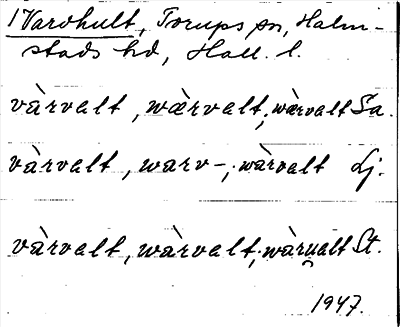 1 Varvhult, Torups sn, Halm-
stads hd, Hall. l.
vàrvalt, wærvalt, wærvalt Sa.
vàrvalt, warv-, wàrvalt Lj.
vàrvalt, wàrvalt, wàru̯alt St.
1947.